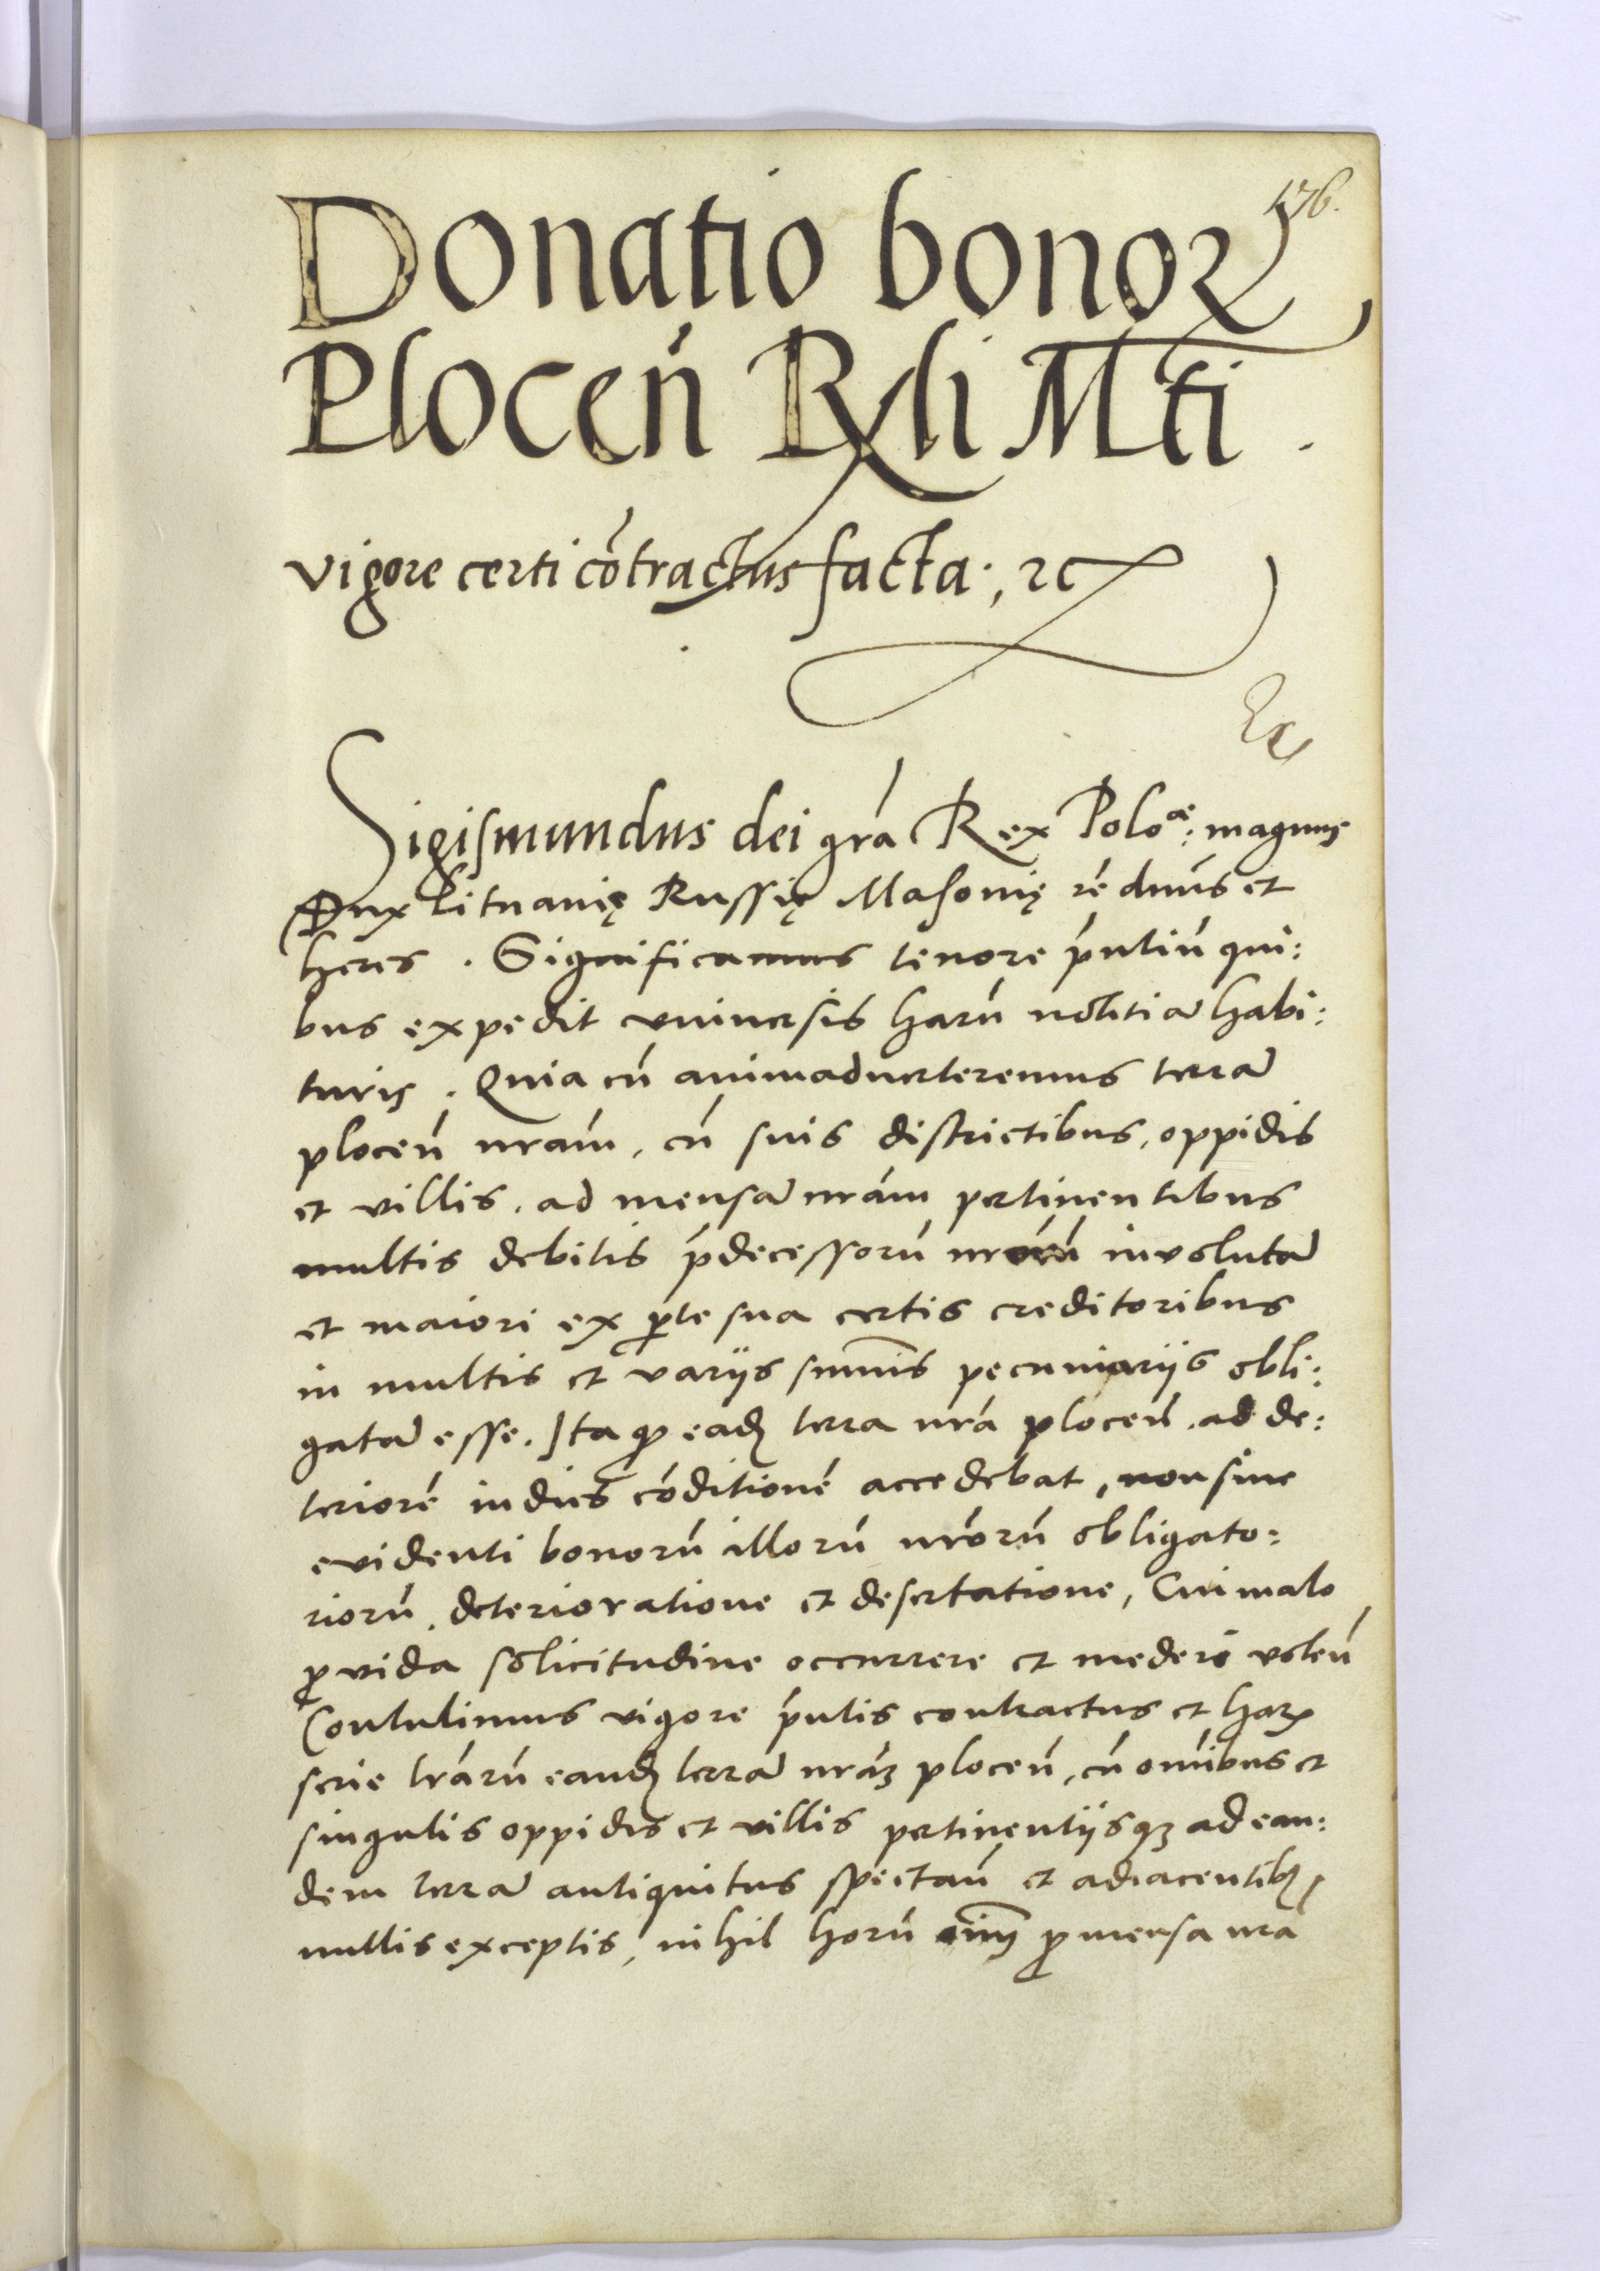 176.
Donatio bonoꝝ
Ploceń Rli Mti.
vigore certi cōtractus facta ., ⁊c
Sigismundus dei gr̃a Rex Poloæ: magnus
Dux Lituanię Russię Masouię rē dn̄us et
heres . Significamus tenore p̄ntiū qui:
bus expedit vniuersis harū notitiā habi:
turis . Quia cū animaduerteremus terrā
ploceń nr̄am, cū suis districtibus, oppidis
et villis, ad mensā nr̄am pertinentibus
multis debitis p̄decessorū nr̄orū involutā
et maiori ex ꝑte sua certis creditoribus
in multis et varijs sum̄is pecuniarijs obli:
gatā esse. Ita ꝙ eadꝫ terra nr̄a ploceń, ad de:
teriorē in dies cōditionē accedebat, non sine
evidenti bonorū illorū nr̄orū obligato:
riorū, deterioratione et desertatione, Cui malo
ꝓvida solicitudine occurrere et mederi voleń
Contulimus vigore p̄ntis contractus et haꝝ
serie lr̄arū eandꝫ terrā nr̄aꝫ ploceń, cū om̄ibus et
singulis oppidis et villis pertinentijsqꝫ ad ean:
dem terrā antiquitus spectań et adiacentibꝫ,
nullis exceptis, nihil horū ꝓ mensa nr̄a